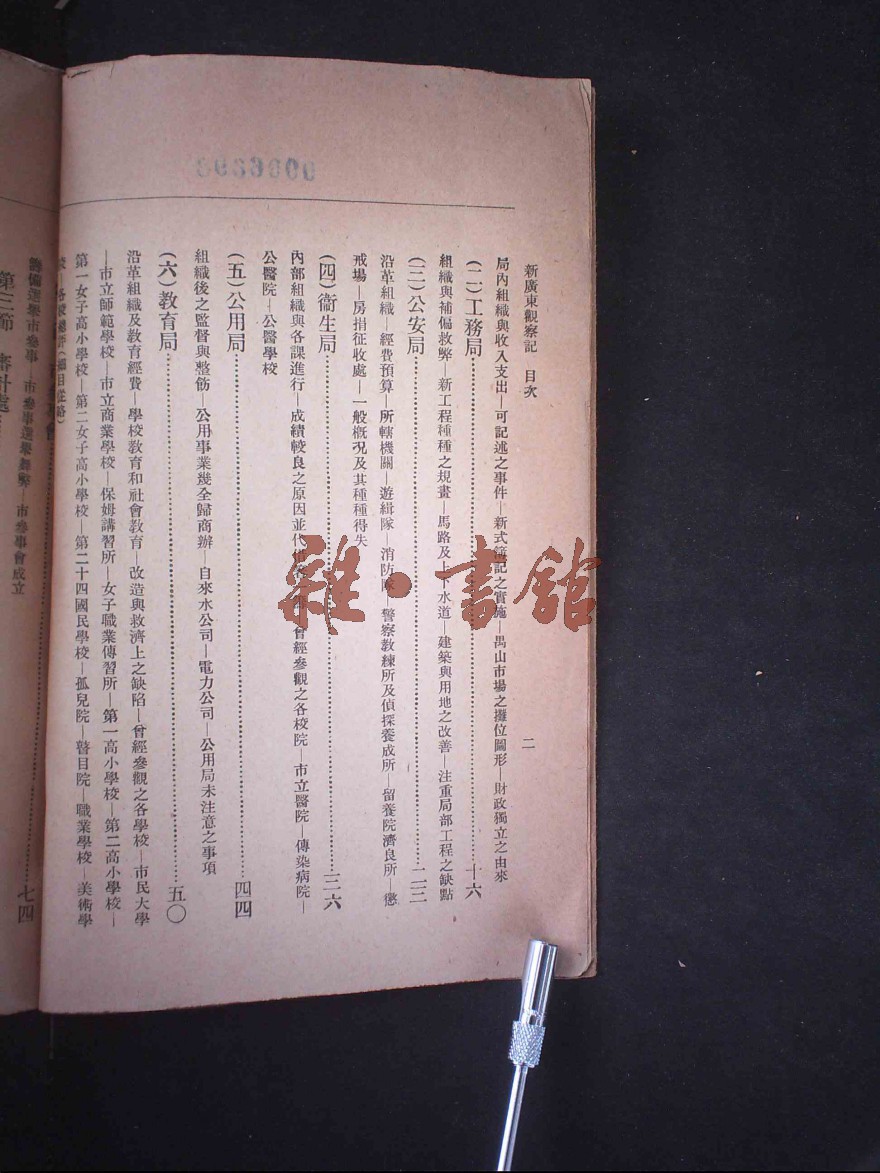 0006393
新廣東觀察記　目次
二
局內組織與收入支出—可記述之事件—新式簿記之實施—禺山市場之攤位圖形—財政獨立之由來
(二)工務局……十六
組織與補偏救弊—新工程種種之規畫—馬路及上下水道—建築與用地之改善—注重局部工程之缺點
(三)公安局……二三
沿革組織—經費預算—所轄機關—遊緝隊—消防隊—警察教練所及偵探養成所—留養院濟良所—懲
戒場—房捐征收處—一般概況及其種種得失
(四)衛生局……三六
內部組織與各課進行—成績較良之原因並代—曾經參觀之各校院—市立醫院—傳染病院—
公醫院—公醫學校
(五)公用局……四四
組織後之監督與整飭—公用事業幾全歸商辦—自來水公司—電力公司—公用局未注意之事項
(六)教育局……五〇
沿革組織及教育經費—學校教育和社會教育—改造與救濟上之缺陷—曾經參觀之各學校—市民大學
—市立師範學校—市立商業學校—保姆講習所—女子職業傳習所—第一高小學校—第二高小學校—
第一女子高小學校—第二女子高小學校—第二十四國民學校—孤兒院—瞽目院—職業學校—美術學
校—(細目從略)
七四
籌備選舉市參事—市參事選舉舞弊—市參事會成立
第三節　審計處
雜·書館